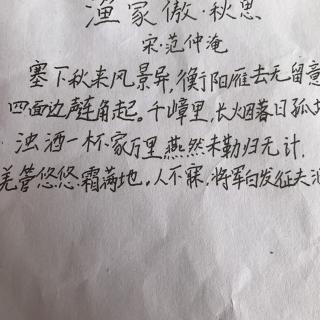 渔家傲·秋思
宋·范仲淹
塞下秋来风景异,衡阳雁去无留意
四面边声连角起。千嶂里,长烟落日孤
浊酒一杯家万里,燕然未勒归无计.
羌管悠悠.霜满地。人不寐.将军白发征夫